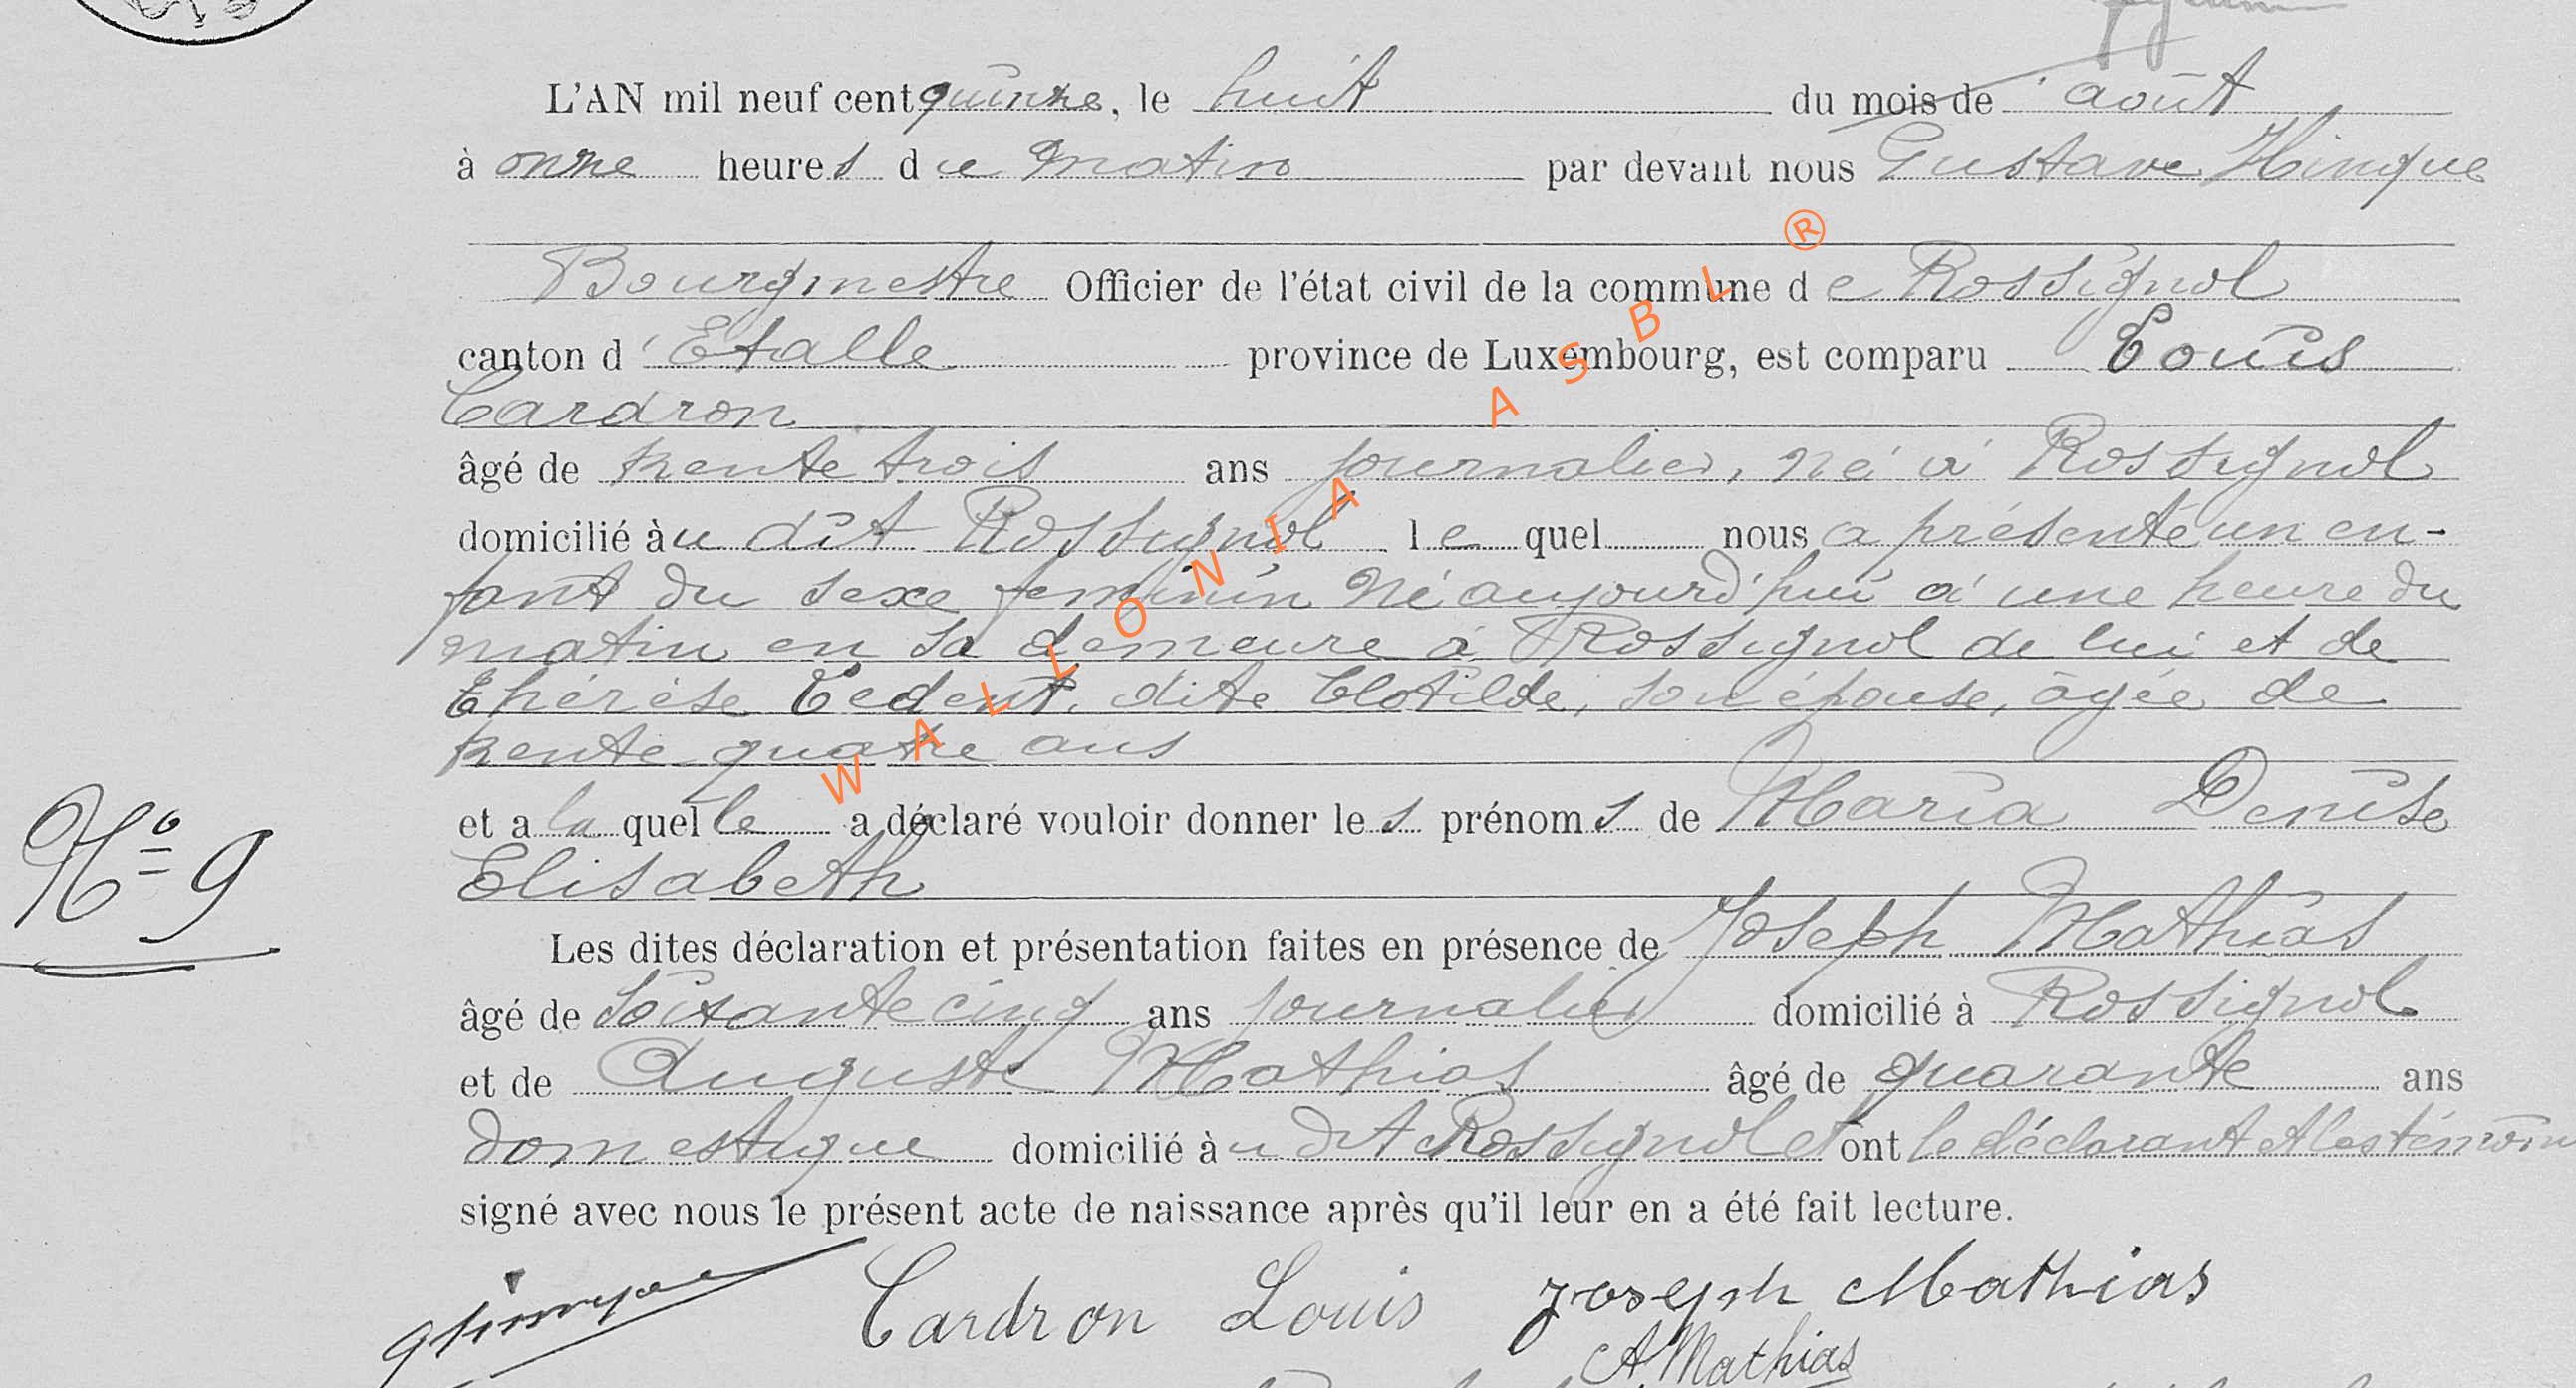 L'AN mil neuf cent quinze, le huit du mois de août
à onze heures du matin par devant nous Gustave Hinque
Bourgmestre Officier de l'état civil de la commune de Rossignol
canton d'Etalle province de Luxembourg, est comparu Louis
Cardron
âgé de trente trois ans journalier, né à Rossignol
domicilié àu dit Rossignol lequel nous a présenté un en-
fant du sexe feminin né aujourd'hui à une heure du
matin en sa demeure à Rossignol de lui et de
Thérèse Ledent, dite Clotilde, son épouse, âgée de
trente-quatre ans
et a la quelle a déclaré vouloir donner les prénoms de Maria Denise
Elisabeth
N° 9
Les dites déclaration et présentation faites en présence de Joseph Mathias
âgé de soixante cinq ans journalier domicilié à Rossignol
et de Auguste Mathias âgé de quarante ans
domestique domicilié àu dit Rossignol et ont le déclarant et les témoins
signé avec nous le présent acte de naissance après qu'il leur en a été fait lecture.
GHinque Cardron Louis Joseph Mathias
A. Mathias
WALLONIA ASBL ®